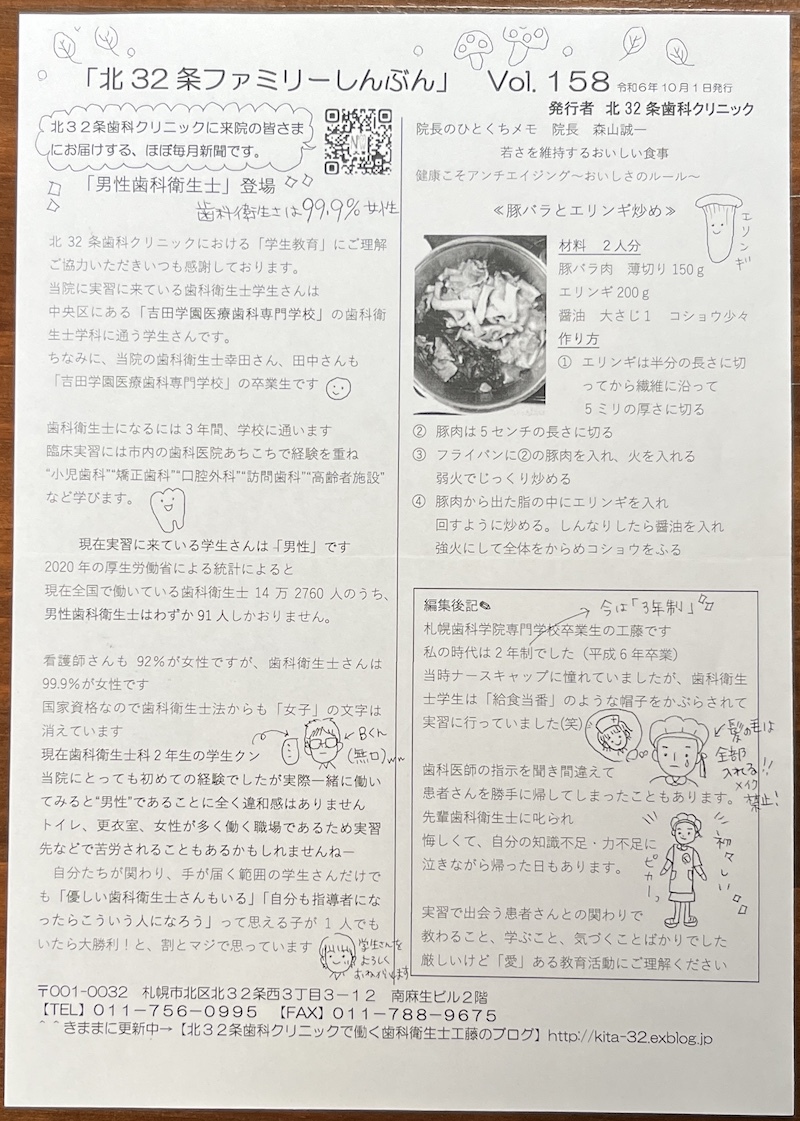 「北32条ファミリーしんぶん」 Vol. 158 令和6年10月1日発行
発行者 北32条歯科クリニック
北32条歯科クリニックに来院の皆さま
にお届けする、ほぼ毎月新聞です。
「男性歯科衛生士」登場
歯科衛生士は99.9%女性
北32条歯科クリニックにおける「学生教育」にご理解
ご協力いただきいつも感謝しております。
当院に実習に来ている歯科衛生士学生さんは
中央区にある「吉田学園医療歯科専門学校」の歯科衛
生士学科に通う学生さんです。
ちなみに、当院の歯科衛生士幸田さん、田中さんも
「吉田学園医療歯科専門学校」の卒業生です
歯科衛生士になるには3年間、学校に通います
臨床実習には市内の歯科医院あちこちで経験を重ね
“小児歯科”“矯正歯科”“口腔外科”“訪問歯科”“高齢者施設”
など学びます。
現在実習に来ている学生さんは「男性」です
2020年の厚生労働省による統計によると
現在全国で働いている歯科衛生士14万2760人のうち、
男性歯科衛生士はわずか91人しかおりません。
看護師さんも92%が女性ですが、歯科衛生士さんは
99.9%が女性です
国家資格なので歯科衛生士法からも「女子」の文字は
消えています
現在歯科衛生士科2年生の学生クン
Bくん
(無口)ww
当院にとっても初めての経験でしたが実際一緒に働い
てみると“男性”であることに全く違和感はありません
トイレ、更衣室、女性が多く働く職場であるため実習
先などで苦労されることもあるかもしれませんねー
自分たちが関わり、手が届く範囲の学生さんだけで
も「優しい歯科衛生士さんもいる」「自分も指導者にな
ったらこういう人になろう」って思える子が1人でも
いたら大勝利！と、割とマジで思っています
学生さんを
よろしく
おねがいします
院長のひとくちメモ 院長 森山誠一
若さを維持するおいしい食事
健康こそアンチエイジング～おいしさのルール～
≪豚バラとエリンギ炒め≫
エリンギ
材料 2人分
豚バラ肉 薄切り150g
エリンギ200g
醤油 大さじ1 コショウ少々
作り方
① エリンギは半分の長さに切
ってから繊維に沿って
5ミリの厚さに切る
② 豚肉は5センチの長さに切る
③ フライパンに②の豚肉を入れ、火を入れる
弱火でじっくり炒める
④ 豚肉から出た脂の中にエリンギを入れ
回すように炒める。しんなりしたら醤油を入れ
強火にして全体をからめコショウをふる
編集後記✎
今は「3年制」
札幌歯科学院専門学校卒業生の工藤です
私の時代は2年制でした（平成6年卒業）
当時ナースキャップに憧れていましたが、歯科衛生
士学生は「給食当番」のような帽子をかぶらされて
実習に行っていました(笑)
髪の毛は
全部
入れる!!
メイク
禁止!
歯科医師の指示を聞き間違えて
患者さんを勝手に帰してしまったこともあります。
先輩歯科衛生士に叱られ
悔しくて、自分の知識不足・力不足に
泣きながら帰った日もあります。
初々しい
ピカーッ
実習で出会う患者さんとの関わりで
教わること、学ぶこと、気づくことばかりでした
厳しいけど「愛」ある教育活動にご理解ください
〒001-0032 札幌市北区北32条西3丁目3－12 南麻生ビル2階
【TEL】011－756－0995 【FAX】011－788－9675
＾＾きままに更新中→【北32条歯科クリニックで働く歯科衛生士工藤のブログ】http://kita-32.exblog.jp